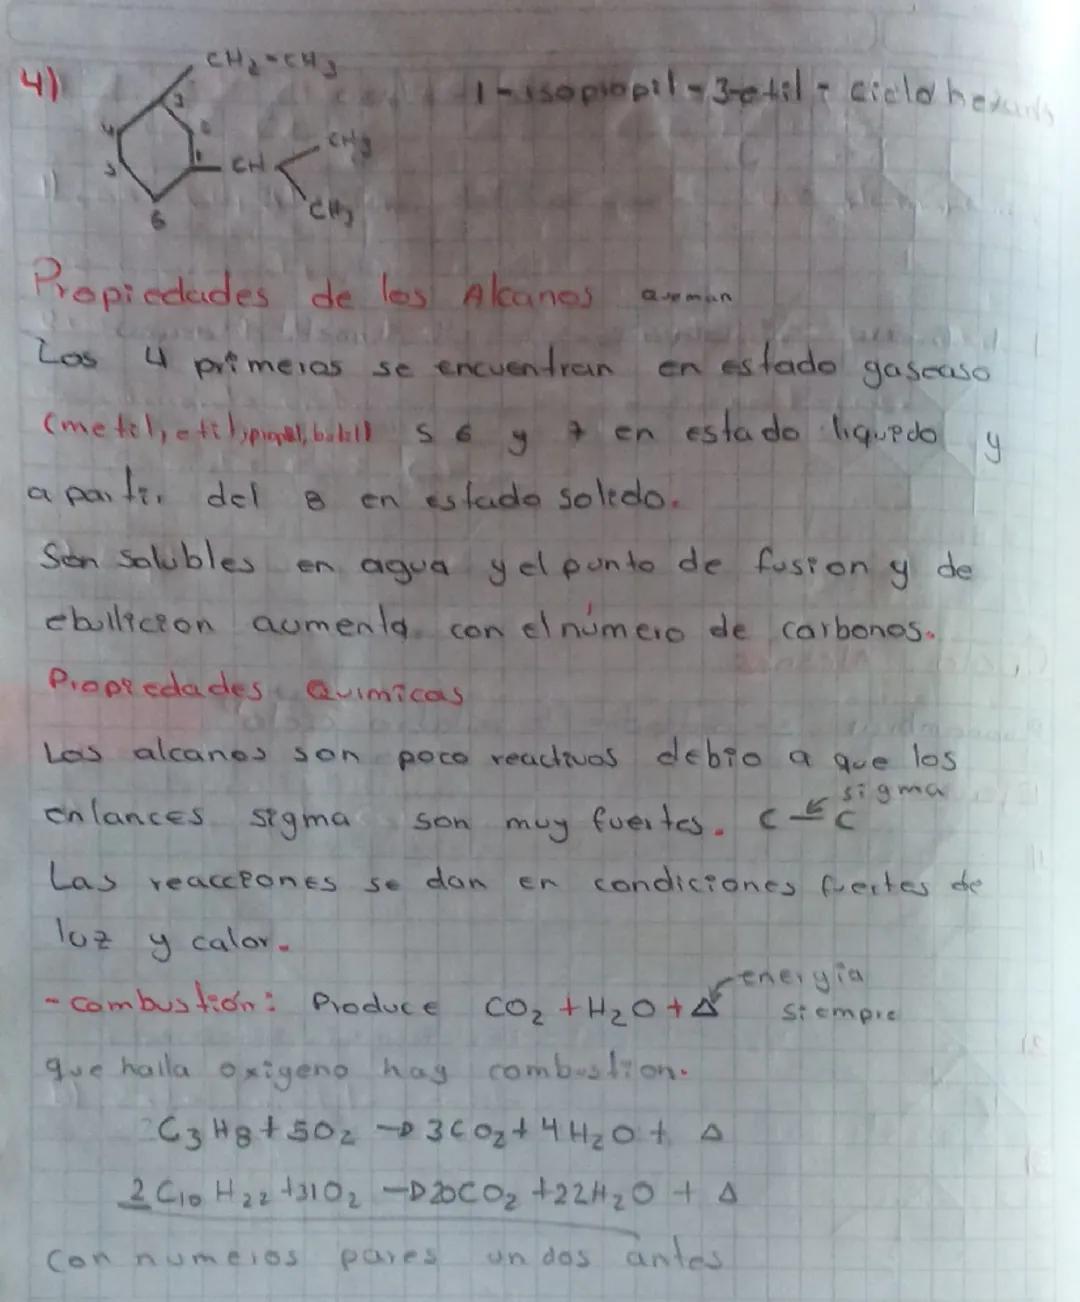 4)
CH2-CH3
1-isopropil-3-etil-ciclohexano
3
4
2
1
CH
CH3
5
CH3
6
Propiedades de los Alkanos
Los 4 primeros se encuentran en estado gaseaso
(metil, etil, propil, butil) 5 6 y 7 en estado liquido y
a partir del 8 en estado solido.
Son solubles en agua y el punto de fusion y de
ebullicion aumenta con el número de carbonos.
Propiedades Quimicas
Los alcanos son poco reactivos debio a que los
enlances sigma son muy fuertes. C-C sigma
Las reacciones se dan en condiciones fuertes de
luz y calor.
- combustión: Produce CO2 + H2O + Δ energia siempre
que halla oxigeno hay combustion.
C3H8 + 5O2 → 3CO2 + 4H2O + Δ
2C10H22 + 31O2 → 20CO2 + 22H2O + Δ
Con numeros pares un dos antes